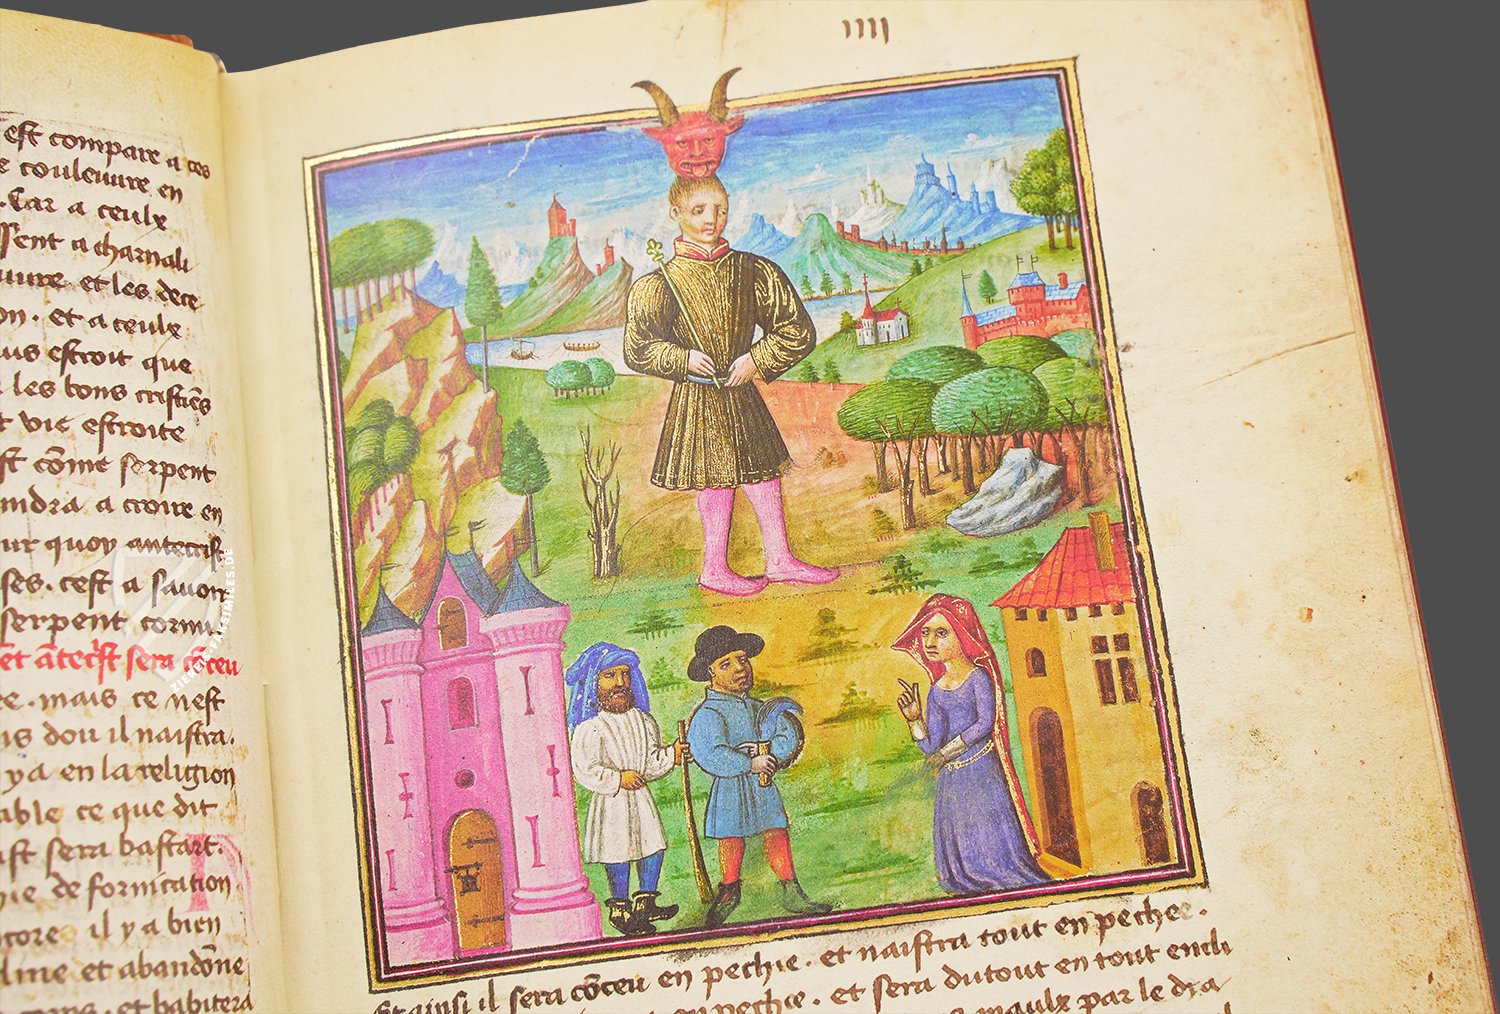 est compare a ces
couleuvre en
. Car a ceulx
sent a charnali
uivre et les dece
on . et a ceulx
us estroit que
a les bons cristiēs
t vie estroite
st cōme serpent
indra a croire en
ur quoy antecrist
ses. cest a savoir
serpent cornu.
et ātecrist sera cōceu
ee. mais ce nest
is dou il naistra.
y a en la religion
able ce que dit
ist sera bastart.
hie de fornication
ncores il y a bien
dine et abandōne
et habitera
ZIEREIS FACSIMILES.DE
IIII
Et ainsi il sera cōceu en pechie . et naistra tout en pechee .
en pechie . et sera du tout en tout encli
maulx par le dia